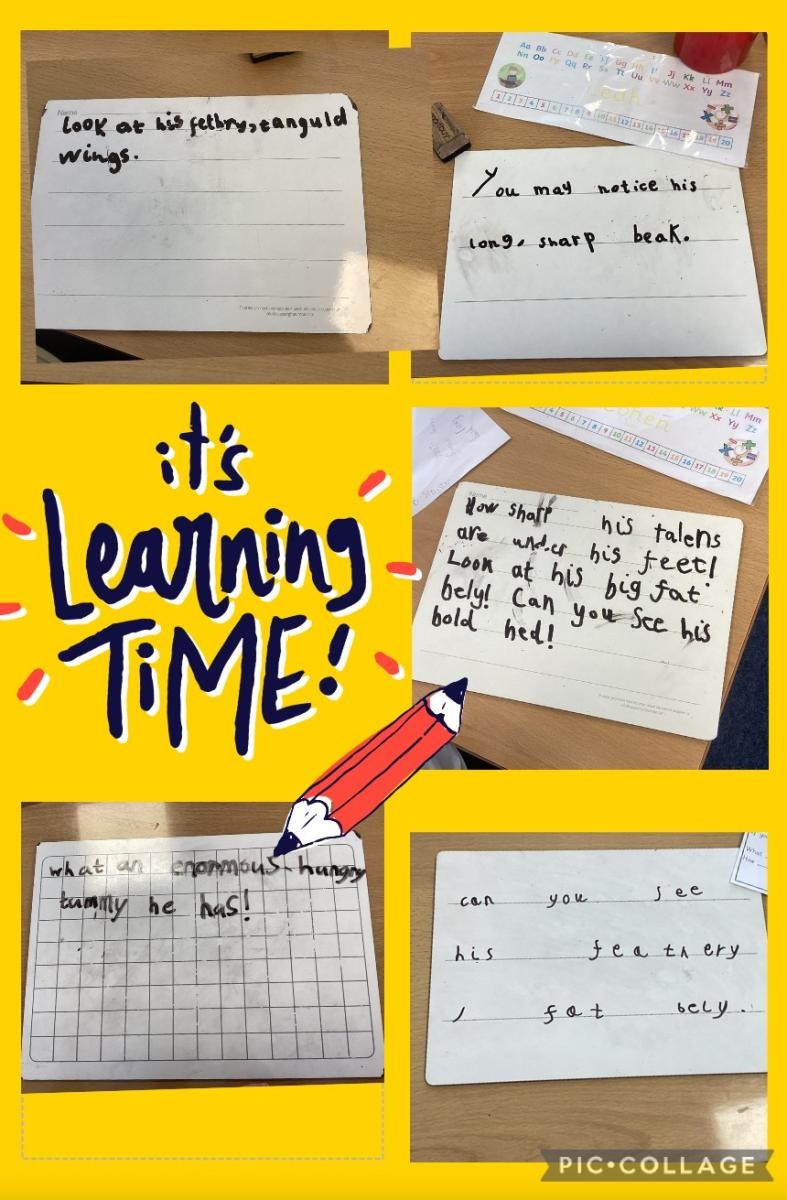 Name
Look at his fethry, tanguld
wings.
Aa Bb Cc Dd Ee Ff Gg Hh Ii Jj Kk Ll Mm
Nn Oo Pp Qq Rr Ss Tt Uu Vv Ww Xx Yy Zz
Leah
1 2 3 4 5 6 7 8 9 10 11 12 13 14 15 16 17 18 19 20
You may notice his
long, sharp beak.
it's
Learning
TiME!
Ll Mm
Ww Xx Yy Zz
4 5 6 7 8 9 10 11 12 13 14 15 16 17 18 19 20
Name
How sharp his talens
are under his feet!
Look at his big fat
bely! Can you See his
bold hed!
what an enormous, hungry
tummy he has!
can you see
his feathery
, fat bely.
What
How
PIC•COLLAGE